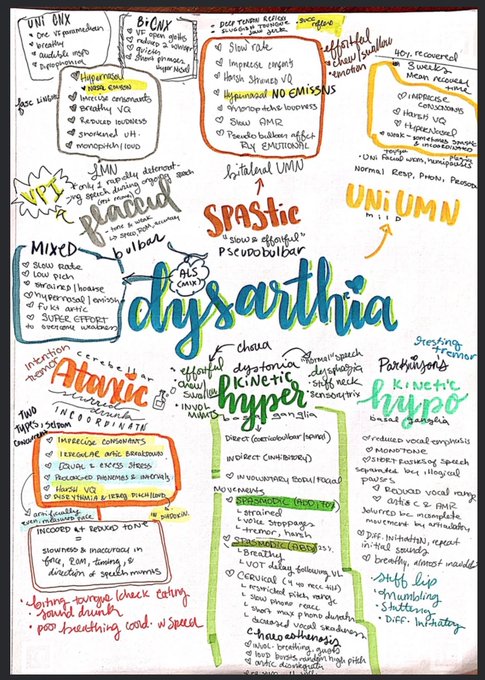 UNI CNX
♡ one VF paramedian
♡ breathy
♡ audible inspo
♡ Diplophonia
BiCNX
♡ VF open glottis
♡ reduced
♡ short phrases
♡ hyper nasal
♡ Hypernasal
NASAL EMISSON
♡ Imprecise consonants
♡ Breathy VQ
♡ REDUCED loudness
♡ shortened utt.
♡ monopitch/loud
LMN
VPI
* only 1 rapidly deteriorat-
ing speech during ongoing speech
flaccid
- tone & weak
↳ speed, ROM, accuracy
bulbar
- DEEP TENDON REFLEX
- SLUGGISH TOUNGUE
- JAW JERK
- succ reflex
effortful
chew/swallow
emotion
♡ Slow rate
♡ Imprecise consnts
♡ Harsh strained VQ
♡ Hypernasal NO EMISSNS
♡ monopitch + loudness
♡ Slow AMR
♡ Pseudobulbar affect
RLY EMOTIONAL
bilateral UMN
SPAStic
"slow & effortful"
pseudobulbar
40%, recovered
3 weeks
Mean recovered time
♡ IMPRECISE
CONSONANTS
♡ HARSH VQ
♡ HYPERNASAL
♡ weak - sometimes spastic
& incoordinated
- UNI Facial weak, hemiparesis
Normal RESP, PHON, PROSODY
UNI UMN
MILD
MIXED
♡ SLOW RATE
♡ LOW pich
♡ strained/hoarse
♡ hypernasal/emission
♡ SUPER EFFORT
to overcome weakness
ALS
(MIX)
dysarthia
Intention
tremor
cerebellar
Ataxic
slurred
drunk
INCOORDINATN
TWO
TYPES, seldom
concurrent
♡ IMPRECISE CONSONANTS
♡ IRREGULAR artic BREAKDOWN
♡ EQUAL & EXCESS STRESS
♡ PROLONGED PHONEMES & intervals
♡ HARSH VQ
♡ DYSRYTHMIA & IRREG PITCH/LOUD
artificially
even, measured pace
INCOORD + REDUCED TONE
=
slowness & inaccuracy in
force, ROM, timing, &
direction of speech mvmnts
• biting tongue/cheek eating
• sound drunk
• poor breathing coord. w speech
chorea
dystonia
effortful
chew
swallow
INVOL
MVMTS
"normal" speech
dysphagia
stiff neck
sensory trix
KINETIC
hyper
basal ganglia
DIRECT (corticobulbar/spinal)
INDIRECT (INHIBITORY)
♡ INVOLUNTARY BODY/FACIAL
MOVEMENTS
♡ SPASMODIC (ADD,
↳ strained
↳ voice stoppages
↳ tremor, harsh
♡ SPASMODIC (ABD,
↳ Breathy
↳ VOT delay following VL
♡ CERVICAL
↳ restricted pitch range
↳ slow phono react
↳ short max phono duratn
↳ decreased vocal steadiness
choreoathenosis
♡ invol. breathing, gusts
♡ loud bursts random high pitch
♡ artic
resting
tremor
Parkinsons
KINETIC
hypo
basal ganglia
♡ reduced vocal emphasis
♡ MONOTONE
♡ SHORT RUSHES of speech
separated by illogical
pauses
♡ REDUCED vocal range
♡ artic & AMR
blurred bc incomplete
movement by articulators
♡ DIFF. INITIATN, repeat
initial sounds
♡ breathy, almost inaudible
stiff lip
• mumbling
• Stuttering
• Diff. Initiating